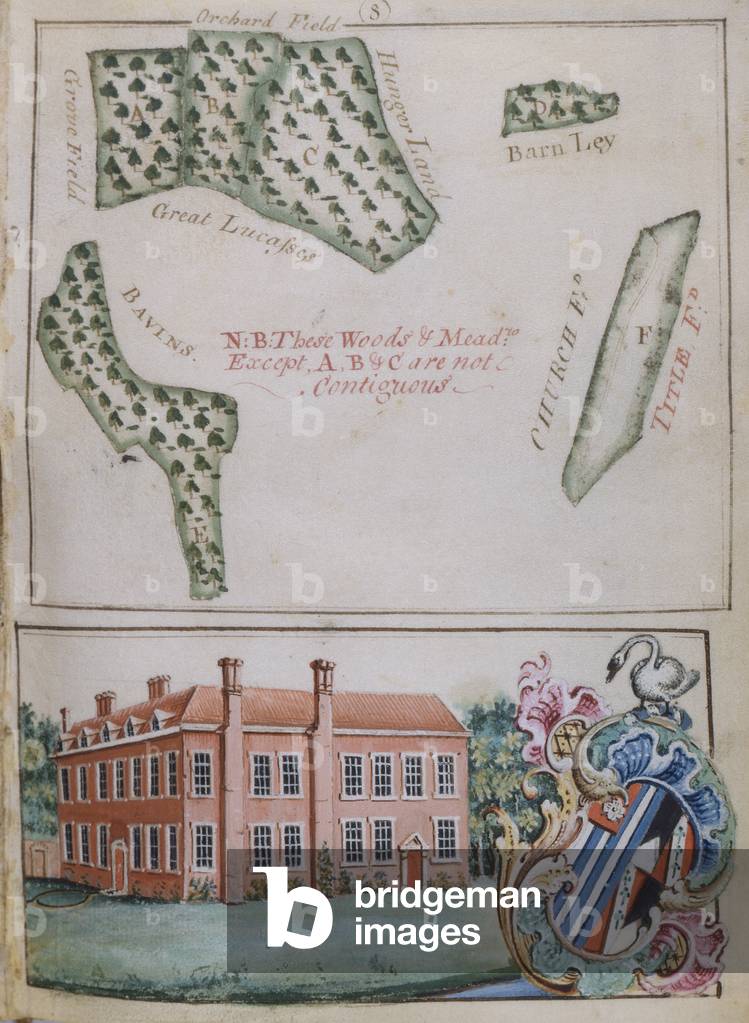 8
Orchard Field
Grove Field
A
B
C
Hunger Land
Great Lucasses
D
Barn Ley
Bavins.
N:B: These Woods & Mead:ws
Except, A, B & C are not
Contiguous
CHURCH F.D
F
TITLE F.D
E
bridgeman
images